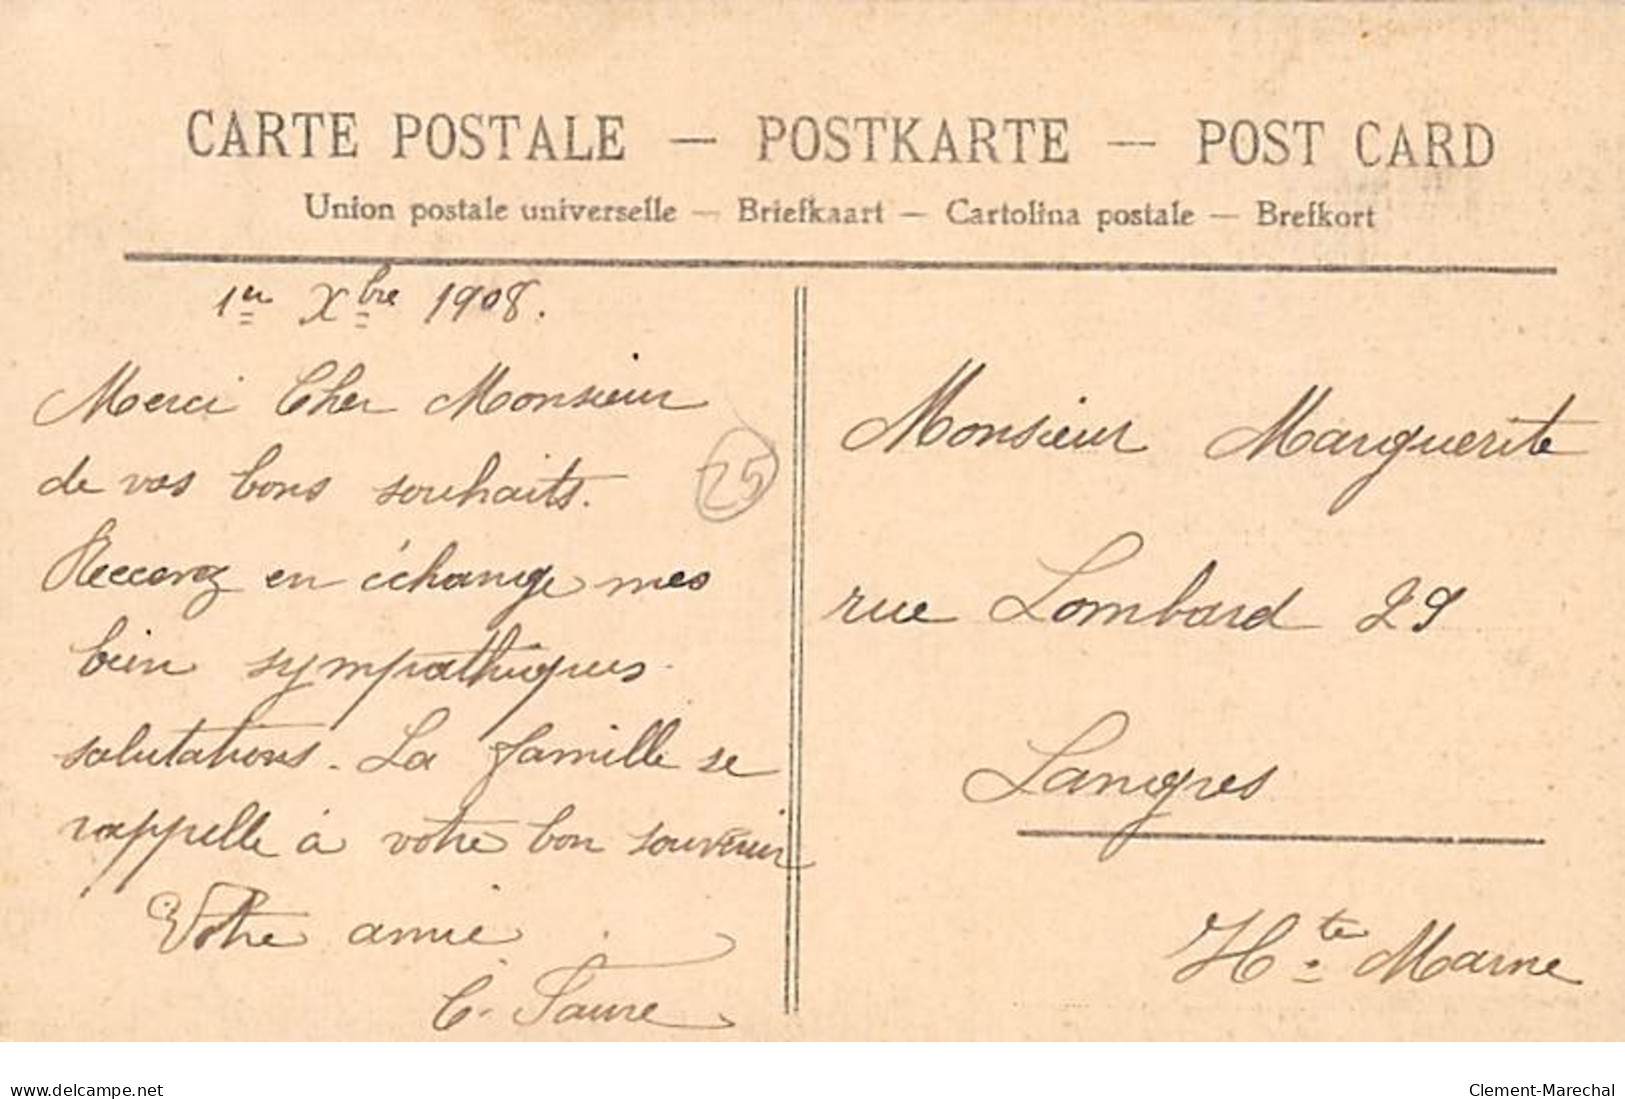 CARTE POSTALE — POSTKARTE — POST CARD
Union postale universelle — Briefkaart — Cartolina postale — Brefkort
1er Xbre 1908.
Merci Cher Monsieur
de vos bons souhaits.
Recevez en échange mes
bien sympathiques
salutations. La famille se
rappelle à votre bon souvenir
Votre amie
C. Faure
25
Monsieur Marguerite
rue Lombard 29
Langres
Hte Marne
delcampe.net
Clement-Marechal